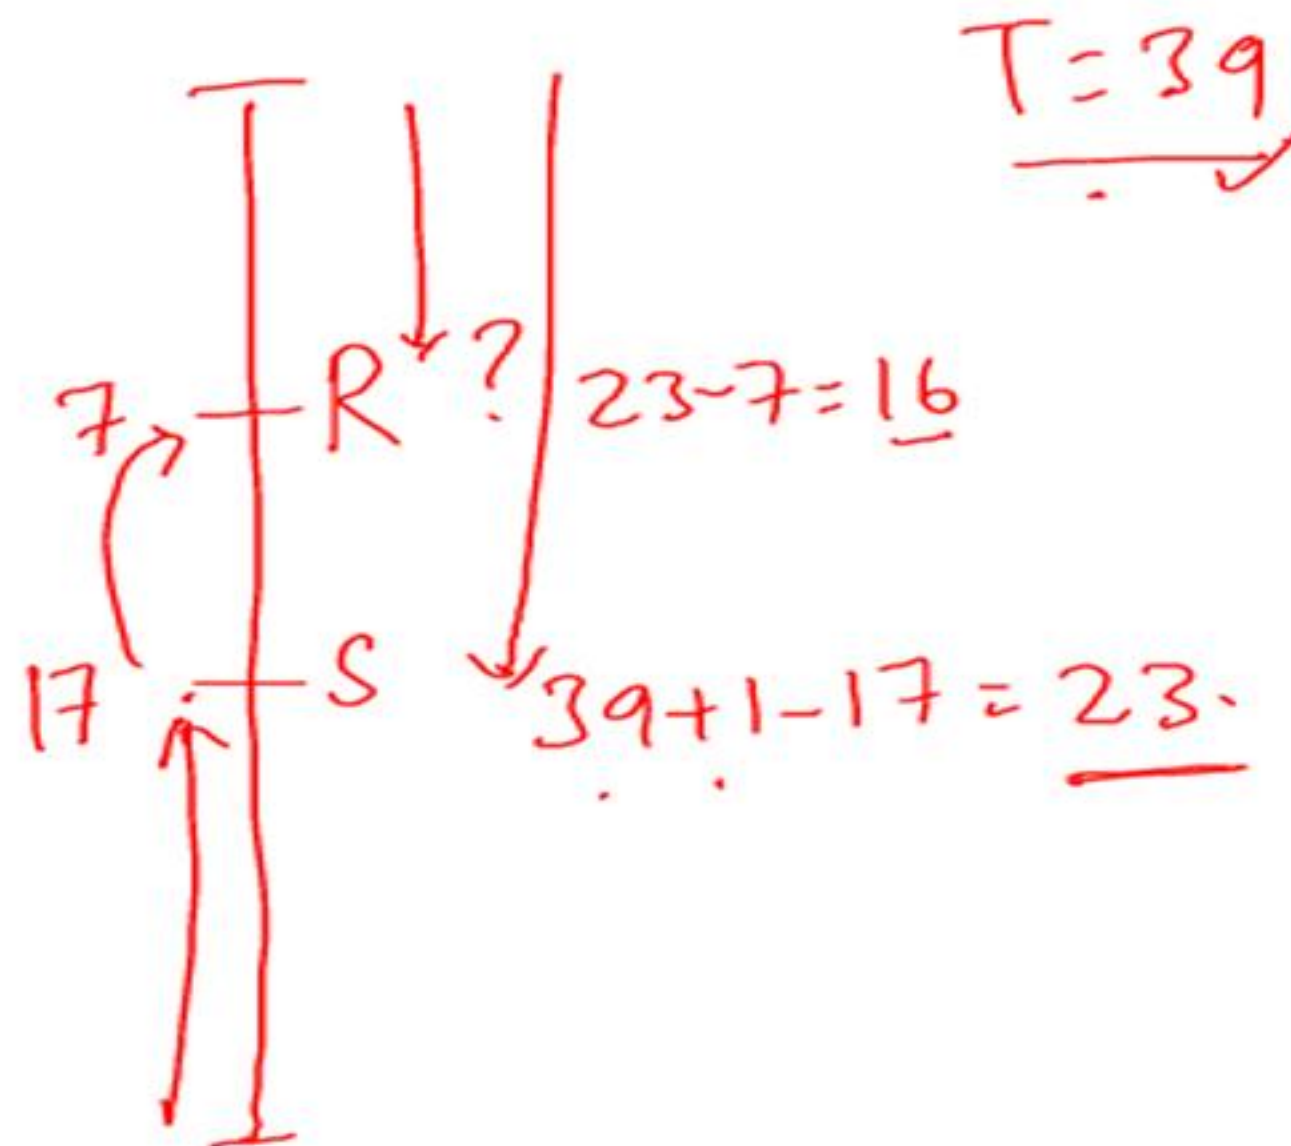 T = 39
7 R ? 23-7=16
17 S 39+1-17 = 23.